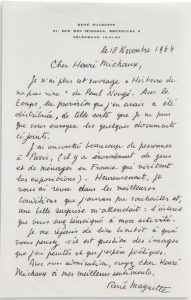 RENÉ MAGRITTE
97, RUE DES MIMOSAS, BRUXELLES 3
TÉLÉPHONE
le 18 Novembre 1964
Cher Henri Michaux,
Je n'ai plus cet ouvrage « Histoire de
ne pas rire » de Paul Nougé. Avec le
temps, la provision que j'en avais a été
distribuée, de telle sorte que je ne puis
que vous envoyer les quelques documents
ci-joint.
J'ai rencontré beaucoup de personnes
à Paris, (il y a énormément de gens
et de ménages en France qui visitent
les expositions). Heureusement, je
vous ai revu dans les meilleures
conditions que j'aurais pu souhaiter et,
une belle surprise m'attendait : l'intérêt
que vous avez témoigné à mon activité.
Je me réjouis de lire bientôt à quoi
vous pensez s'il est question des images
que j'ai peintes et que j'espère poétiques.
Avec mon admiration, croyez, Cher Henri
Michaux à mes meilleurs sentiments,
René Magritte